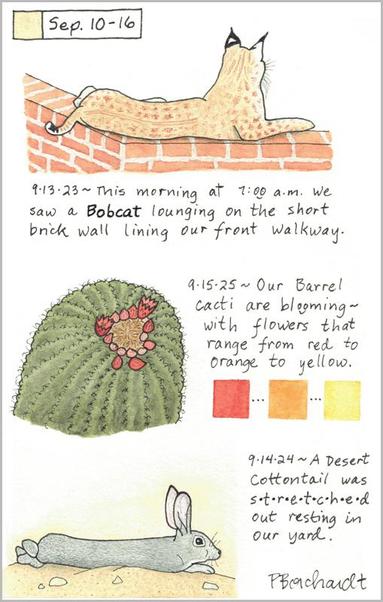 Sep. 10-16
9.13.23~ This morning at 7:00 a.m. we
saw a Bobcat lounging on the short
brick wall lining our front walkway.
9.15.25~ Our Barrel
Cacti are blooming~
with flowers that
range from red to
orange to yellow.
... ...
9.14.24~ A Desert
Cottontail was
s•t•r•e•t•c•h•e•d
out resting in
our yard.
PBorchardt